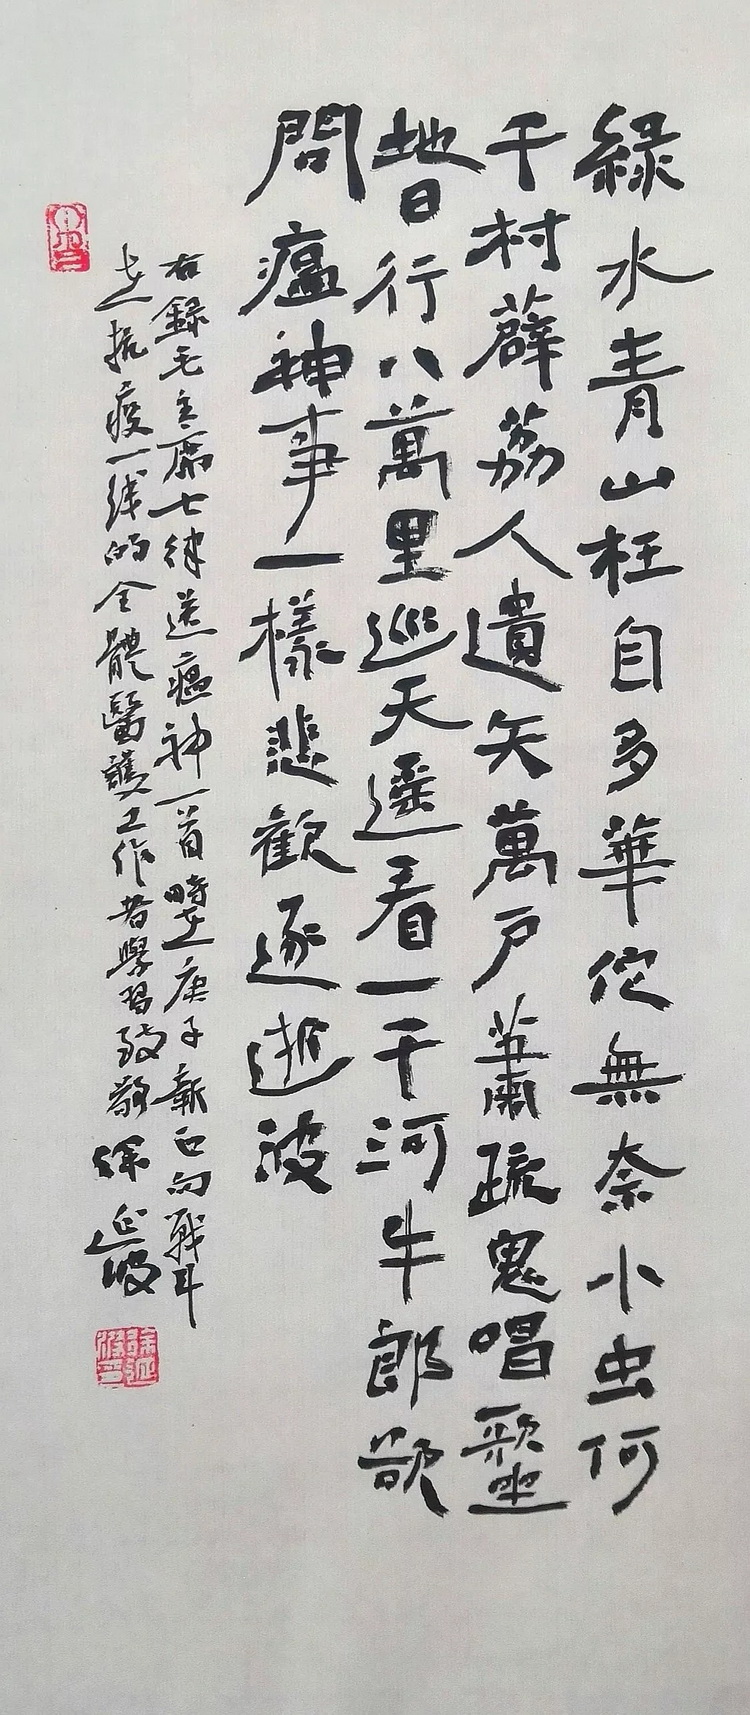 綠水青山枉自多華佗無奈小虫何
千村薜荔人遺矢萬戶蕭疏鬼唱歌坐
地日行八萬里巡天遥看一千河牛郎欲
問瘟神事一樣悲歡逐逝波
右錄毛主席七律送瘟神一首時在庚子新正向戰斗
在抗疫一线的全體醫護工作者學習致敬 徐延波